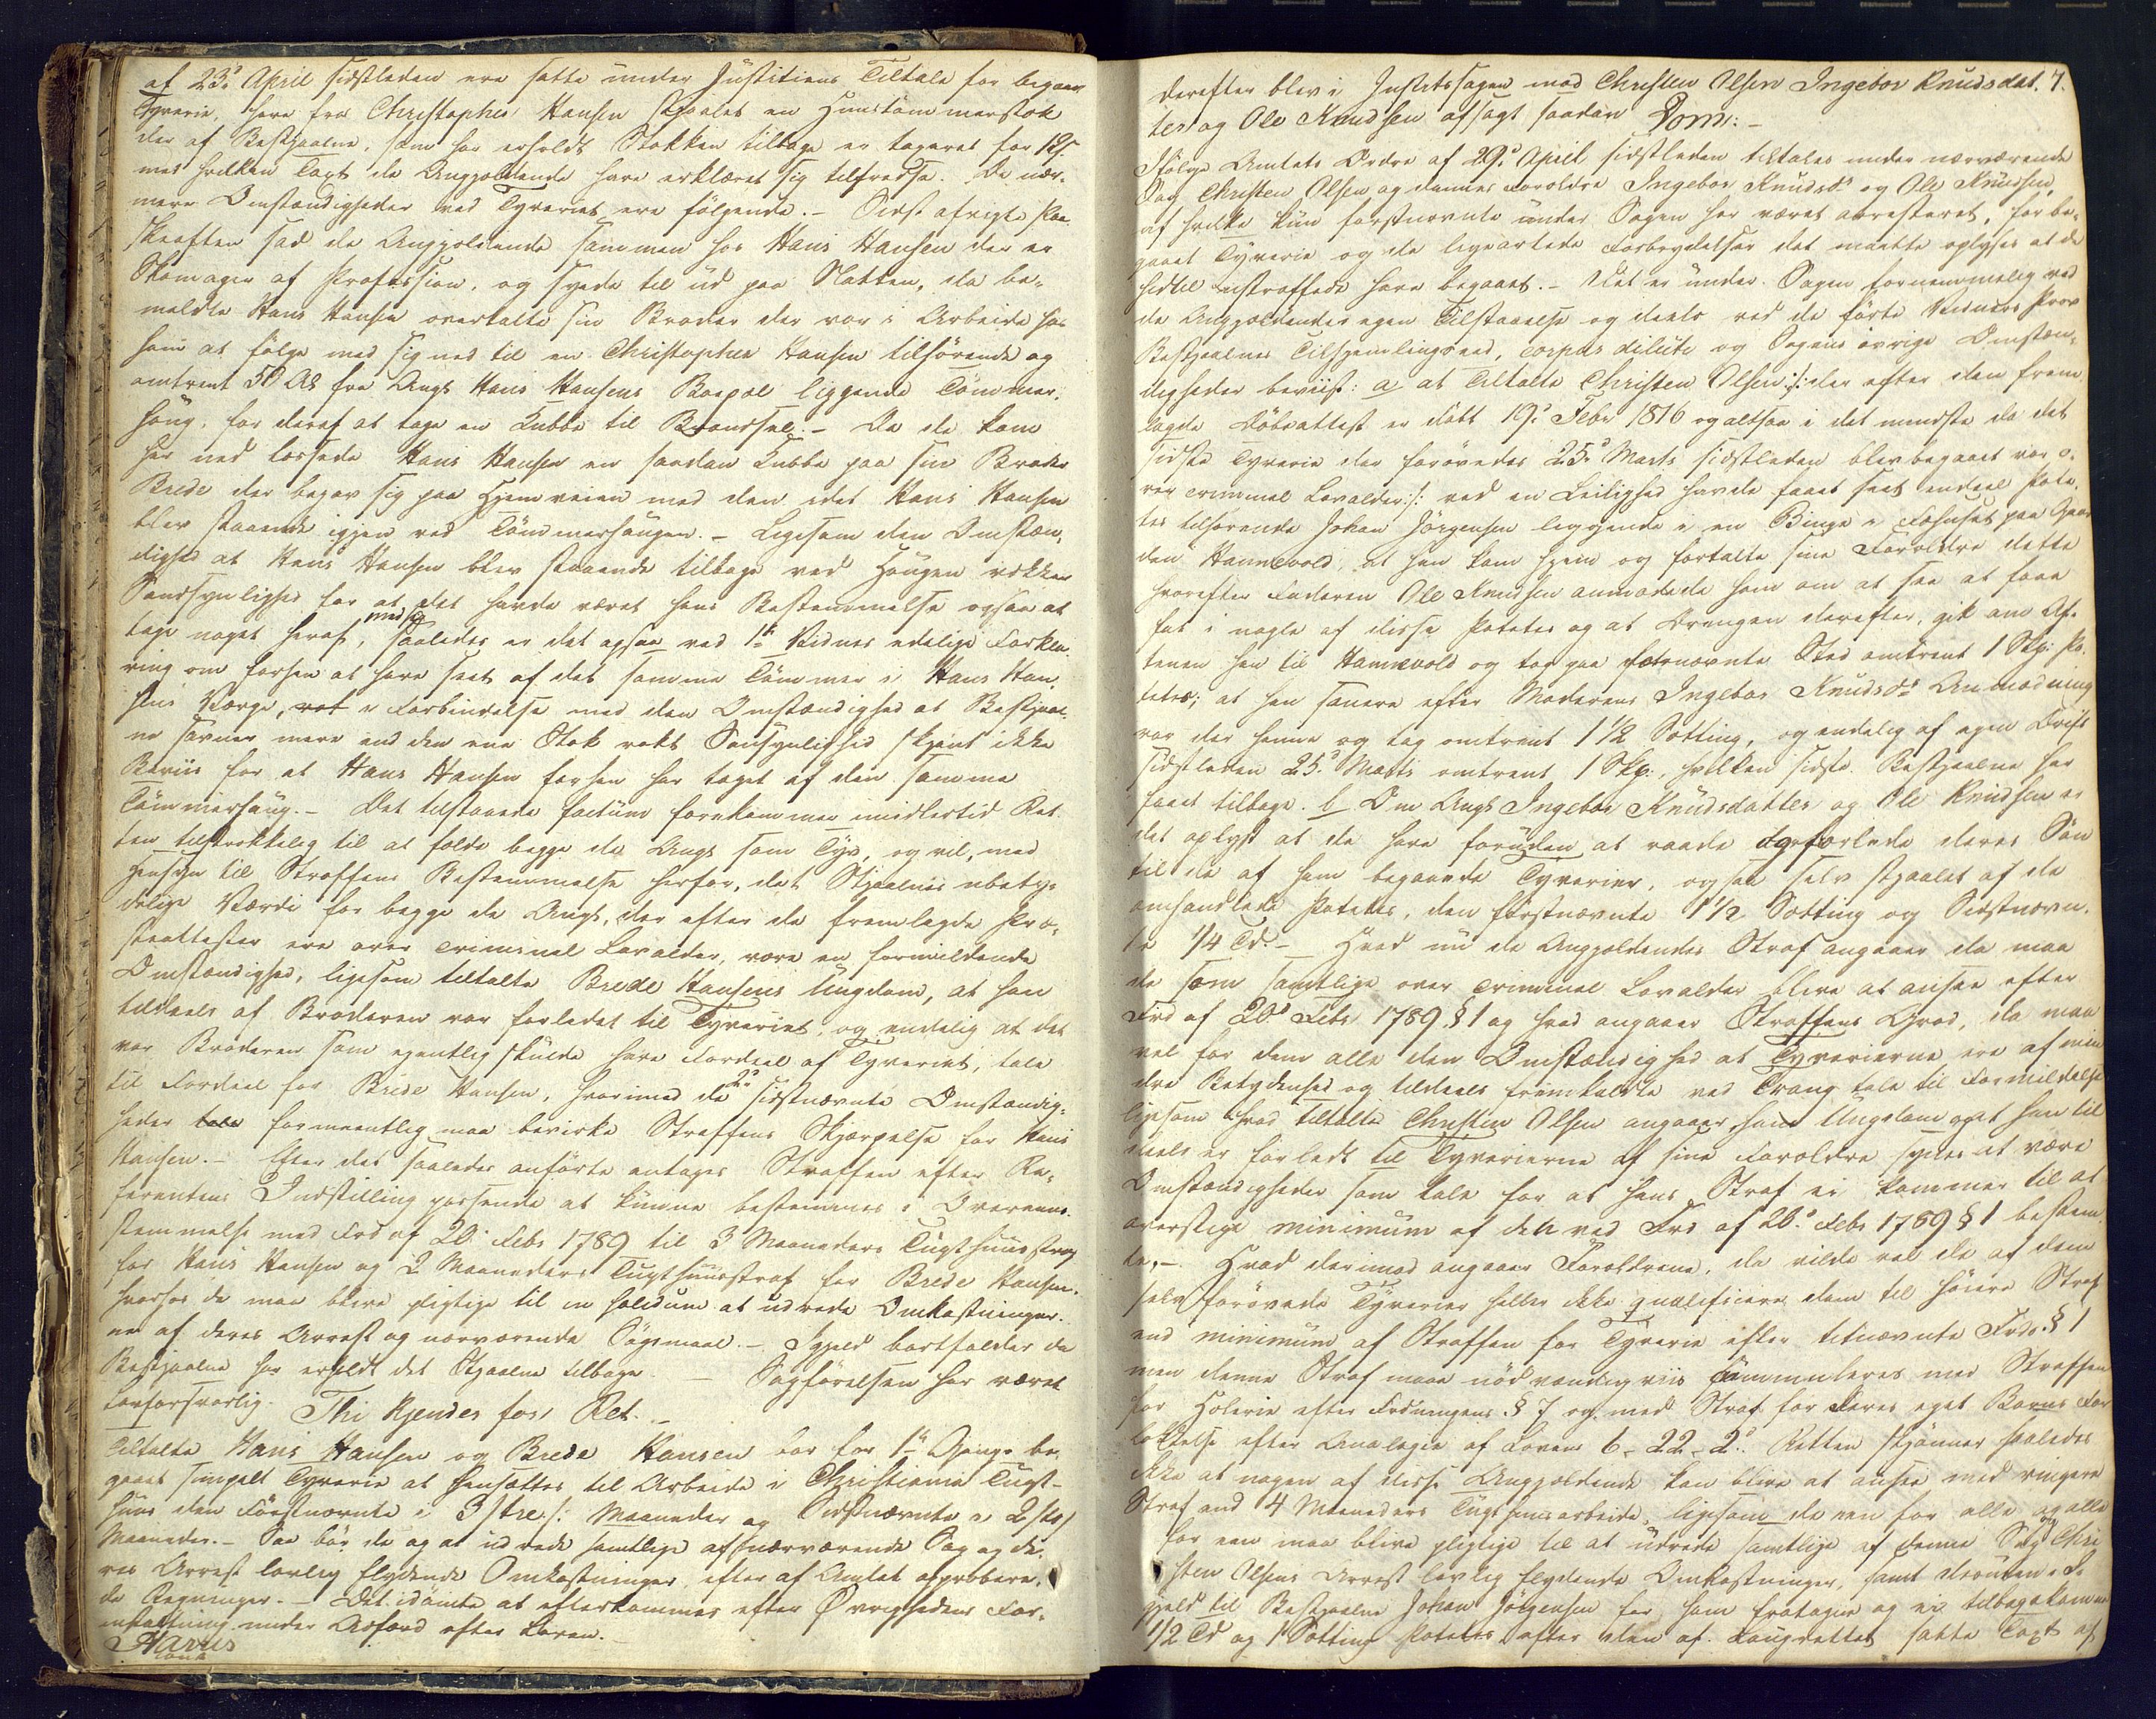 af 23de April sidstleden ere satte under Justitiens Tiltale for begaaet
Tyverie, have fra Christopher Hansen stjaalet en Huustømmerstok
der af Bestjaalne, som har erholdt Stokken tilbage er taxeret for 12 s.
med hvilken Taxt de Angjældende have erklæret sig tilfredse. De nær¬
mere Omstændigheder ved Tyveriet ere følgende. – Sidst afvigte Paa¬
skeaften sad de Angjældende sammen hos Hans Hansen der er
Skomager af Profession, og syede til ud paa Natten, da be¬
meldte Hans Hansen overtalte sin Broder der var i Arbeide hos
ham at følge med sig ned til en Christopher Hansen tilhørende og
omtrent 50 Al fra Angt Hans Hansens Boepæl liggende Tømmer¬
haug, for deraf at tage en Kubbe til Brændsel. – Da de kom
her ned lossede Hans Hansen en saadan Kubbe paa sin Broder
Brede der begav sig paa Hjemveien med den idet Hans Hansen
blev staaende igjen ved Tømmerhaugen. – Ligesom den Omstæn¬
dighed at Hans Hansen blev staaende tilbage ved Haugen vækker
Sandsynlighed for at det havde været hans Bestemmelse ogsaa at
tage noget heraf med sig, saaledes er det ogsaa ved 1te Vidnes edelige Forkla¬
ring om forhen at have seet af det samme Tømmer i Hans Han¬
sens Værge, i Forbindelse med den Omstændighed at Bestjaal¬
ne savner mere end den ene Stok vakt Sansynlighed skjønt ikke
Beviis for at Hans Hansen forhen har taget af den samme
Tømmerhaug. – Det tilstaaede factum forekommer imidlertid Ret¬
ten tilstrækkelig til at fælde begge de Angt som Tyv, og vil, med
Hensyn til Straffens Bestemmelse herfor, det Stjaalnes ubety¬
delige Værdi for begge de Angt, der efter de fremlagde Præ¬
steattester ere over criminel Lavalder, være en formildende
Omstændighed, ligesom tiltalte Brede Hansens Ungdom, at han
tildeels af Broderen var forledet til Tyveriet, og endelig at det
var Broderen som egentlig skulde have Fordeel af Tyveriet, tale
til Fordeel for Brede Hansen, hvorimod de 2de sidstnævnte Omstændig¬
heder formeentlig maa bevirke Straffens Skjærpelse for Hans
Hansen. – Efter det saaledes anførte antages Straffen efter Re¬
ferentens Indstilling passende at kunne bestemmes i Overeens¬
stemmelse med Frd af 20de Febr 1789 til 3 Maaneders Tugthuusstraf
for Hans Hansen og 2 Maaneders Tugthuusstraf for Brede Hansen.
hvorhos de maa blive pligtige til in solidum at udrede Omkostninger¬
ne af deres Arrest og nærværende Søgsmaal. – Igjeld bortfalder da
Bestjaalne har erholdt det Stjaalne tilbage. – Sagførelsen har været
lovforsvarlig. Thi kjendes for Ret: –
Tiltalte Hans Hansen og Brede Hansen bør for 1te Gange be¬
gaaet simpelt Tyverie at hensættes til Arbeide i Christiania Tugt¬
huus den Førstnævnte i 3 /:tre:/ Maaneder og Sidstnævnte i 2 /to/
Maaneder. – Saa bør de og at udrede samtlige af nærværende Sag og de¬
res Arrest lovlig flydende Omkostninger, efter af Amtet approbere¬
de Regninger. – Det idømte at efterkommes efter Øvrighedens For¬
anstaltning under Adfærd efter Loven.
7.
Derefter blev i Justitssagen mod Christen Olsen Ingebor Knudsdat¬
ter og Ole Knudsen afsagt saadan Dom: –
Ifølge Amtets Ordre af 29de April sidstleden tiltales under nærværende
Sag Christen Olsen og dennes Forældre Ingebor Knudsdr og Ole Knudsen,
af hvilke kun førstnævnte under Sagen har været arresteret, for be¬
gaaet Tyverie og de ligeartede Forbrydelser det maatte oplyses at de
hidtil ustraffede have begaaet. – Det er under Sagen fornemmelig ved
de Angjældendes egen Tilstaaelse og deels ved de førte Vidners Prov
Bestjaalnes Tilhjemlingseed, corpus dilicti og Sagens øvrige Omstæn¬
digheder beviist: a at Tiltalte Christen Olsen /: der efter den frem¬
lagde Døbeattest er født 19de Febr 1816 og altsaa i det mindste da det
sidste Tyverie der forøvedes 25de Marts sidstleden blev begaaet var o¬
ver criminel Lavalder :/ ved en Leilighed havde faaet seet endeel Pote¬
ter tilhørende Johan Jørgensen liggende i en Binge i Fæhuset paa Gaar¬
den Hannevold; at han kom hjem og fortalte sine Forældre dette
hvorefter Faderen Ole Knudsen anmodede ham om at see at faae
fat i nogle af disse Poteter og at Drengen derefter, gik om Af¬
tenen hen til Hannevold og tog paa førstnævnte Sted omtrent 1 Skp: Po¬
teter; at han senere efter Moderens Ingebor Knudsdr Anmodning
var der henne og tog omtrent 1 1/2 Sotting, og endelig af egen Drift
sidstleden 25de Marts omtrent 1 Skp:, hvilken sidste Bestjaalne har
faaet tilbage. b Om Angt Ingebor Knudsdatter og Ole Knudsen er
det oplyst at de have foruden at raade og forlede deres Søn
til de af ham begaaede Tyverier, ogsaa selv stjaalet af de
omhandlede Poteter, den førstnævnte 1 1/2 Sotting og Sidstnævn¬
te 1/4 Td. – Hvad nu de Angjældendes Straf angaaer da maa
de som samtlige over criminel Lavalder blive at ansee efter
Frd af 20de Febr 1789 § 1 og hvad angaaer Straffens Grad, da maa
vel for dem alle den Omstændighed at Tyverierne ere af min¬
dre Betydenhed og tildeels fremkaldte ved Trang tale til Formildelse
ligesom hvad tiltalte Christen Olsen angaaer, hans Ungdom og at han til¬
deels er forledt til Tyverierne af sine Forældre synes at være
Omstændigheder som tale for at hans Straf ei kommer til at
overstige minimum af den ved Frd af 20de Febr 1789 § 1 bestem¬
te. – Hvad derimod angaaer Forældrene, da vilde vel de af dem
selv forøvede Tyverier heller ikke qvalificere dem til høiere Straf
end minimum af Straffen for Tyverie efter titnævnte Frds § 1
men denne Straf maa nødvendigviis cummuleres med Straffen
for Hælerie efter Frdningens § 7 og med Straf for deres eget Barns For¬
lokkelse efter Analogie af Loven 6 – 22 – 2de. Retten skjønner saaledes
ikke at nogen af disse Angjældende kan blive at ansee med ringere
Straf end 4 Maaneders Tugthuusarbeide, ligesom de een for alle og alle
for een maa blive pligtige til at udrede samtlige af denne Sag og Chri¬
sten Olsens Arrest lovlig flydende Omkostninger, samt desuden I¬
gjeld til Bestjaalne Johan Jørgensen for ham fratagne og ei tilbagekomne
1/2 Td og 1 Sotting Poteter efter den af Laugrettet satte Taxt af